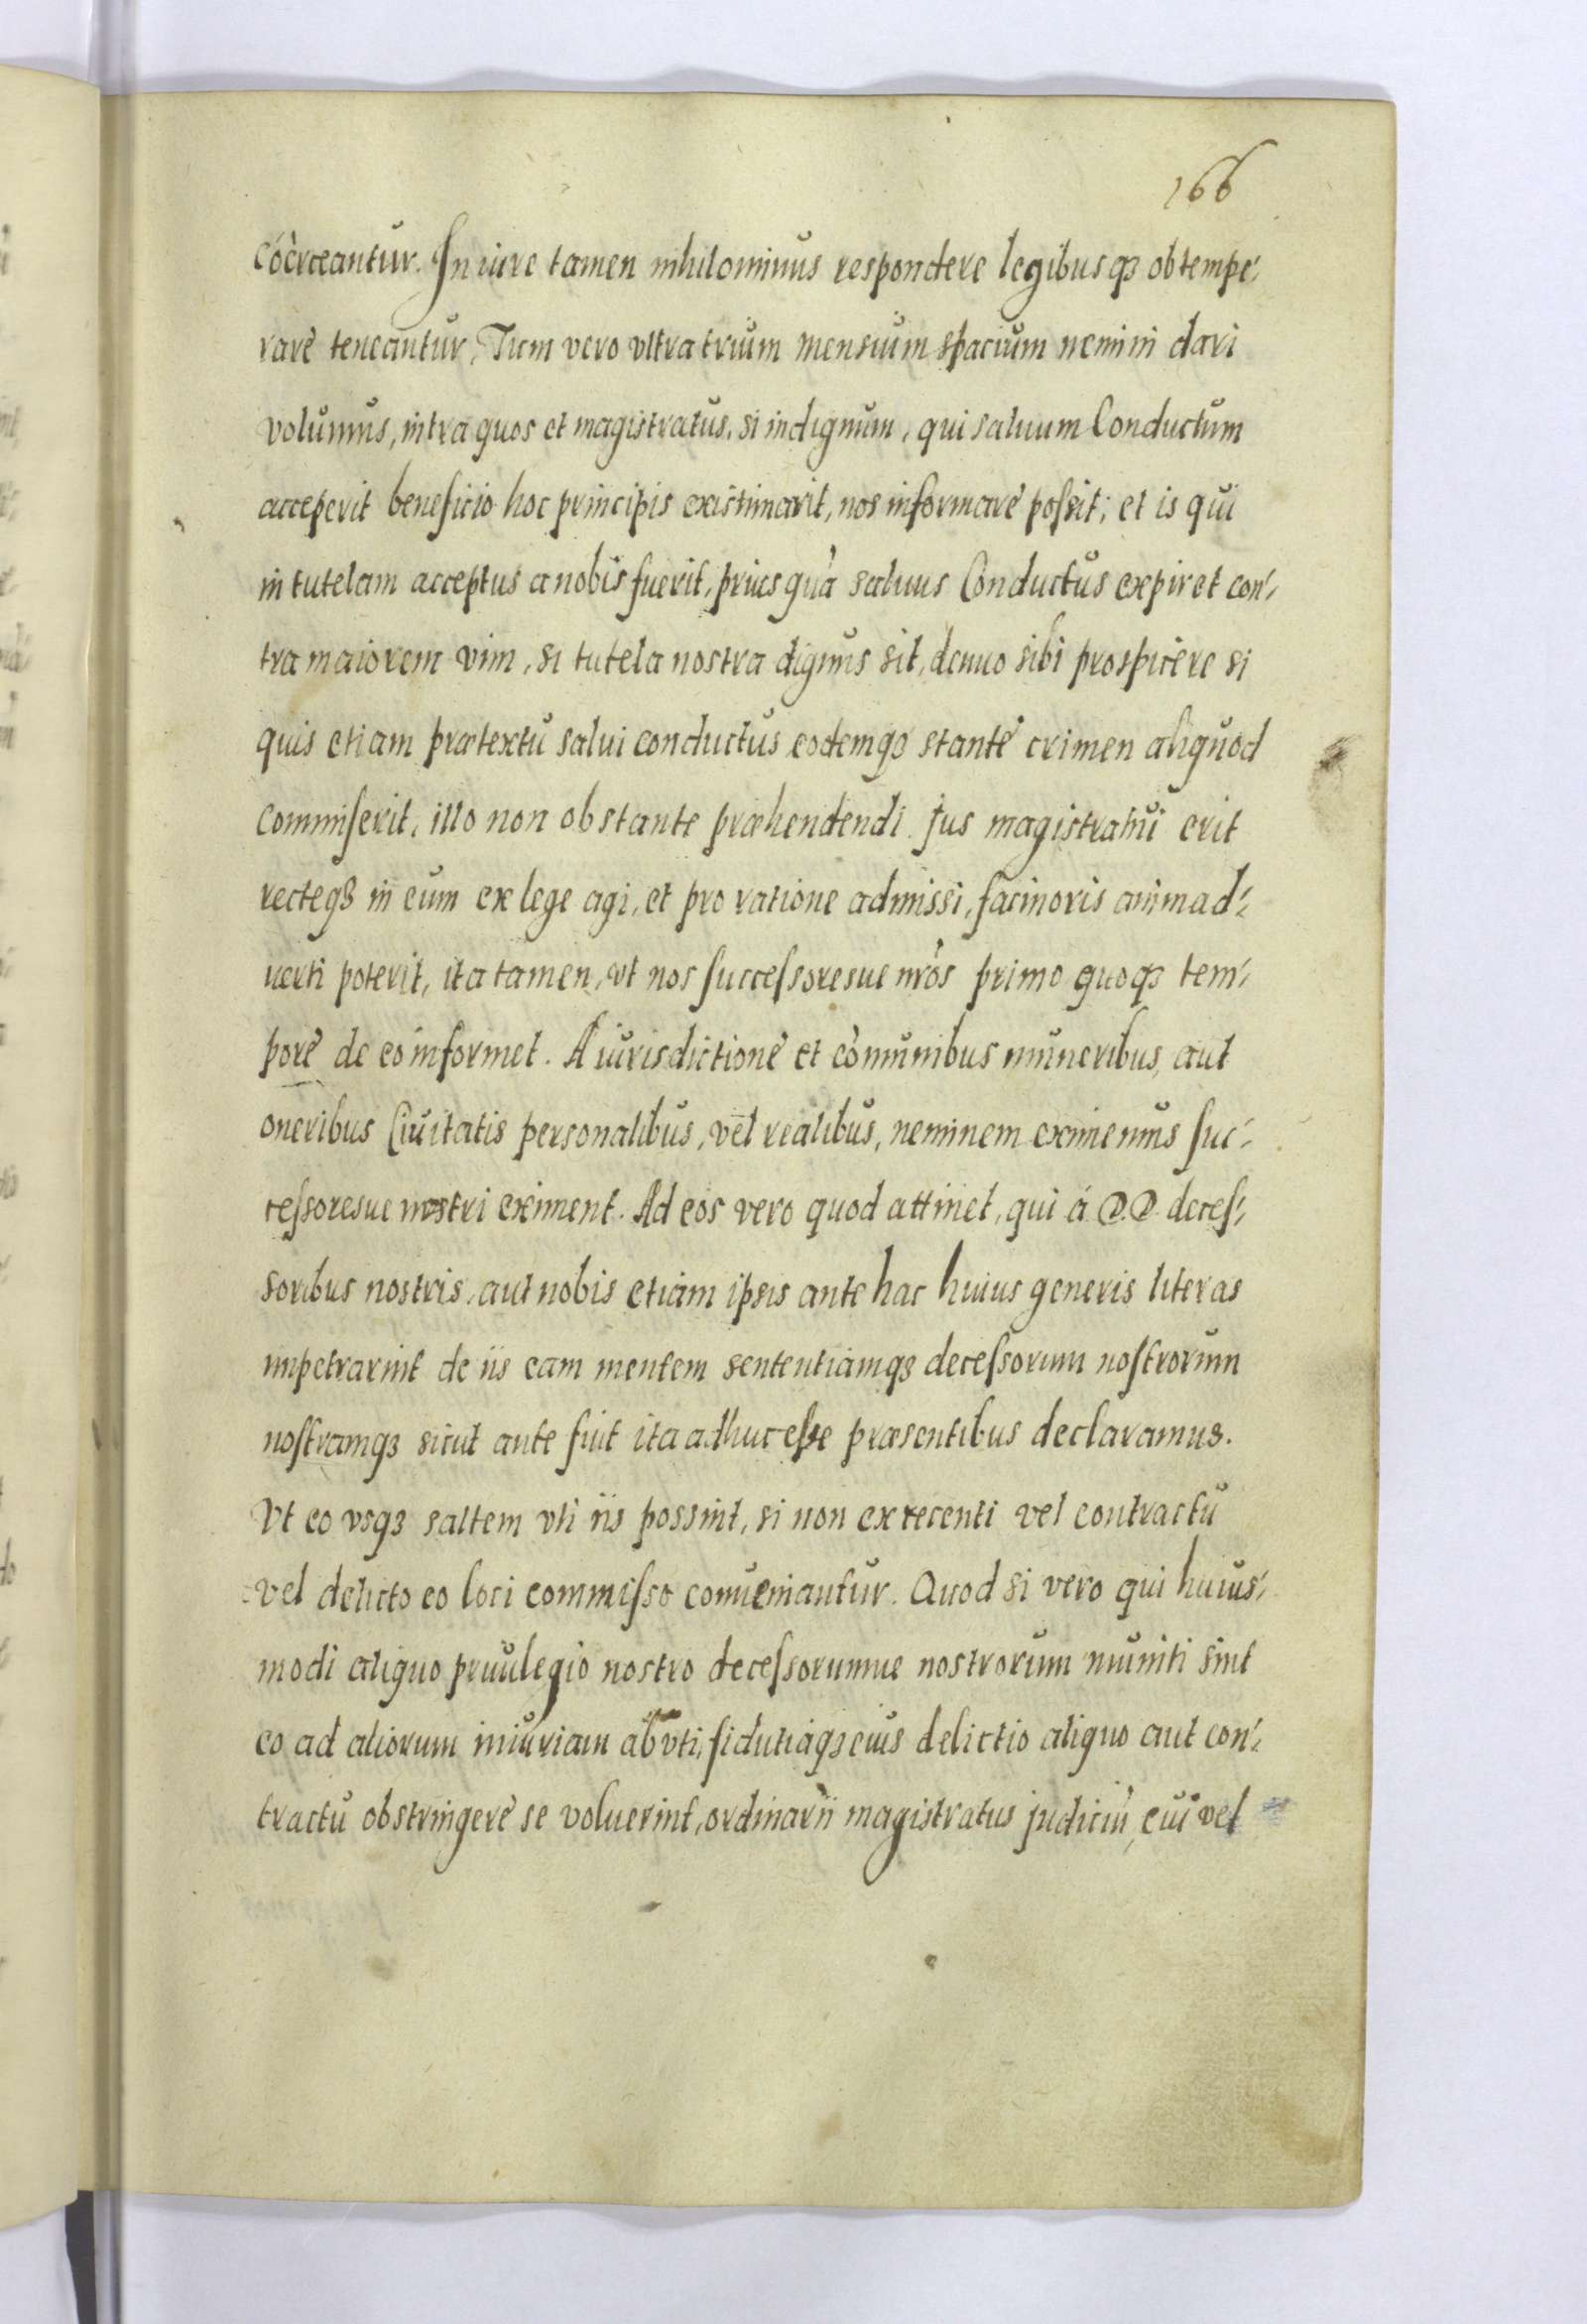 166
cöerceantur. In iure tamen nihilominus respondere legibusqꝫ obtempe-
rare teneantur. Tum vero vltra trium mensium spacium nemini dari
volumus, intra quos et magistratus, si indignum, qui saluum Conductum
acceperit beneficio hoc principis existimarit, nos informare poſsit; et is qui
in tutelam acceptus a nobis fuerit, priusquā saluus Conductus expiret con-
tra maiorem vim, si tutela nostra dignus sit, denuo sibi prospicere si
quis etiam prætextu salui conductus eodemqꝫ stante crimen aliquod
commiſerit, illo non obstante præhendendi jus magistratui erit
recteqꝫ in eum ex lege agi, et pro ratione admissi, facinoris animad-
uerti poterit, ita tamen, vt nos ſucceſsoresue nrōs primo quoqꝫ tem-
pore de eo informet. A iurisdictione et cōmunibus muneribus, aut
oneribus Ciuitatis personalibus, vel realibus, neminem eximemus ſuc-
ceſsoresue nostri eximent. Ad eos vero quod attinet, qui á D.D. deceſ-
soribus nostris, aut nobis etiam ipsis ante hac huius generis literas
impetrarint de iis eam mentem sententiamqꝫ deceſsorum noſtrorum
noſtramqꝫ sicut ante fuit ita adhuc eſse præsentibus declaramus.
Vt eo vsqꝫ saltem vti iis possint, si non ex recenti vel contractu
vel delicto eo loci commiſso conueniantur. Quod si vero qui huius-
modi aliquo priuilegio nostro deceſsorumue nostrorum muniti sint
eo ad aliorum iniuriam abvti, fidutiāqꝫ eius delictio aliquo aut con-
tractu obstringere se voluerint, ordinarii magistratus judiciū, cui vel